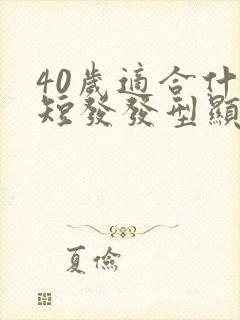 40歲適合什
短發發型顯
夏儉